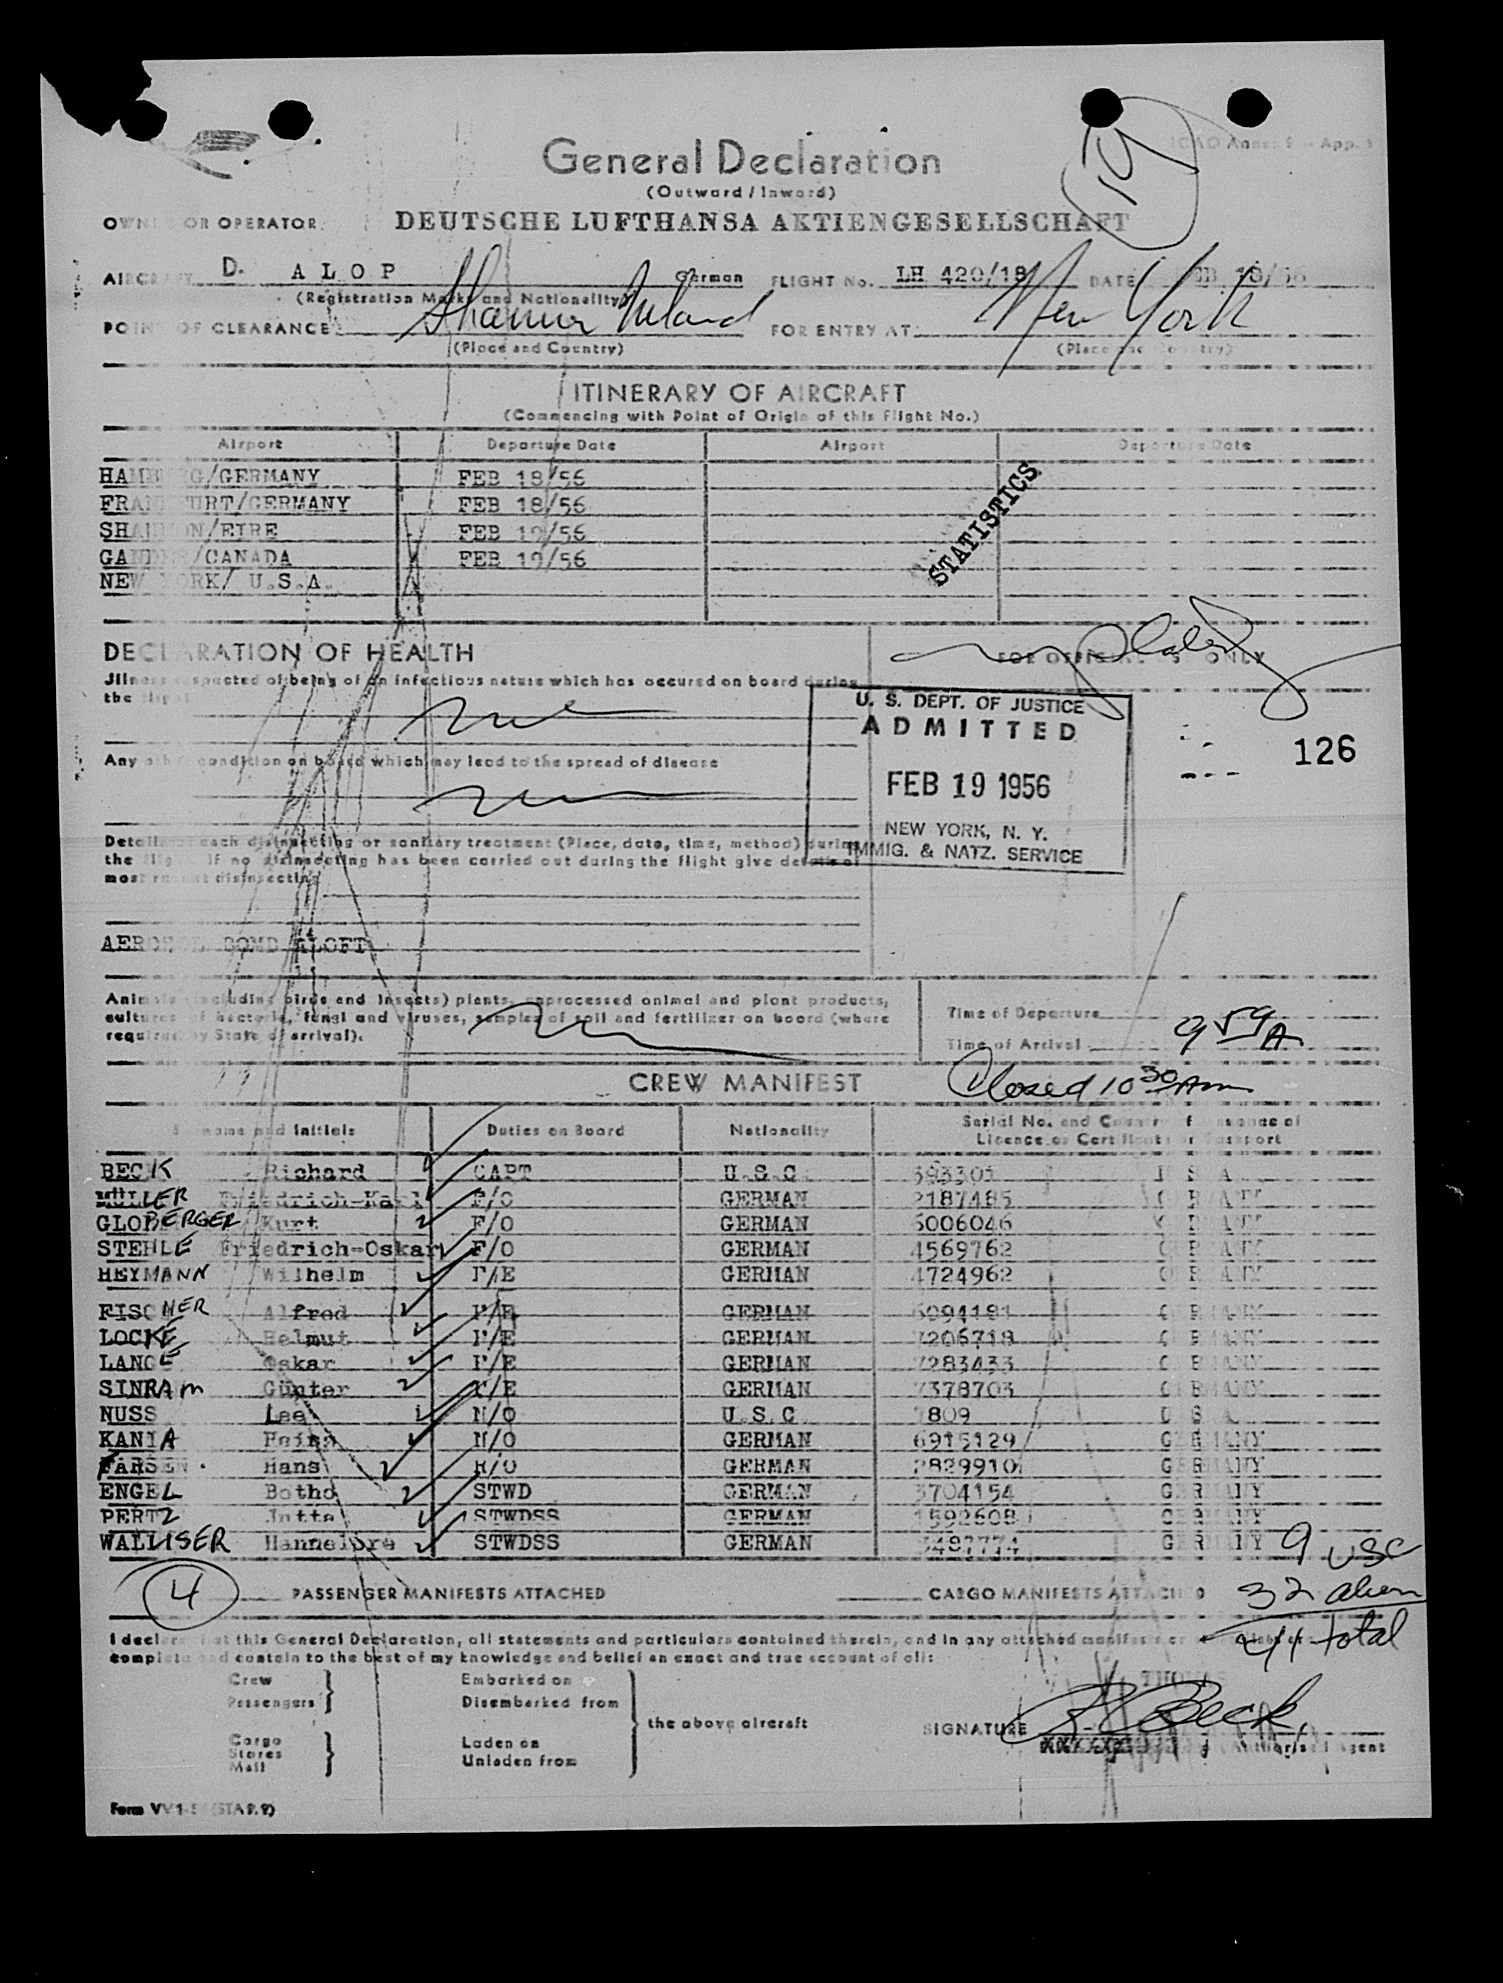 ICAO Annex 9 - App. 1
19
General Declaration
(Outward / Inward)
OWNER OR OPERATOR: DEUTSCHE LUFTHANSA AKTIENGESELLSCHAFT
AIRCRAFT D. A L O P German FLIGHT No. LH 420/18 DATE FEB 18/56
(Registration Marks and Nationality)
POINT OF CLEARANCE: Shannon Ireland FOR ENTRY AT: New York
(Place and Country) (Place and Country)
ITINERARY OF AIRCRAFT
(Commencing with Point of Origin of this Flight No.)
Airport Departure Date Airport Departure Date
HAMBURG/GERMANY FEB 18/56
FRANKFURT/GERMANY FEB 18/56
SHANNON/EIRE FEB 19/56
GANDER/CANADA FEB 19/56
NEW YORK/ U.S.A.
STATISTICS
DECLARATION OF HEALTH FOR OFFICIAL USE ONLY
Illness suspected of being of an infectious nature which has occured on board during
the flight
U. S. DEPT. OF JUSTICE
ADMITTED
FEB 19 1956
NEW YORK, N. Y.
IMMIG. & NATZ. SERVICE
126
Any other condition on board which may lead to the spread of disease
Details of each disinsecting or sanitary treatment (Place, date, time, method) during
the flight. If no disinsecting has been carried out during the flight give details of
most recent disinsecting
AEROSOL BOMB ALOFT
Animals (including birds and insects) plants, unprocessed animal and plant products,
cultures of bacteria, fungi and viruses, samples of soil and fertilizer on board (where
required by State of arrival).
Time of Departure
Time of Arrival 9 59 A
CREW MANIFEST Closed 10 30 Am
Surname and Initials Duties on Board Nationality Serial No. and Country of Issuance of
Licence or Certificate or Passport
BECK Richard CAPT U.S.C U S A
MÜLLER Friedrich-Karl F/O GERMAN 2187485 GERMANY
GLOBERGER Kurt F/O GERMAN 6006046 GERMANY
STEHLE Friedrich-Oskar F/O GERMAN 4569762 GERMANY
HEYMANN Wilhelm F/E GERMAN 4724962 GERMANY
FISCHER Alfred F/E GERMAN GERMANY
LOCKE Helmut F/E GERMAN 7206718 GERMANY
LANGE Oskar F/E GERMAN 7283433 GERMANY
SINRAM Günter F/E GERMAN 7378703 GERMANY
NUSS Lee N/O U.S.C U S A
KANIA Heinz N/O GERMAN 6915129 GERMANY
Hans R/O GERMAN 2829910 GERMANY
ENGEL Botho STWD GERMAN 3704154 GERMANY
PERTZ Jutta STWDSS GERMAN 1592608 GERMANY
WALLISER Hannelore STWDSS GERMAN GERMANY
9 USC
4 PASSENGER MANIFESTS ATTACHED CARGO MANIFESTS ATTACHED 32 alien
41 total
I declare that this General Declaration, all statements and particulars contained therein, and in any attached manifests or
complete and contain to the best of my knowledge and belief an exact and true account of all:
Crew Embarked on
Passengers Disembarked from
the above aircraft
Cargo Laden on
Stores Unladen from
Mail
SIGNATURE R. Beck
Authorised Agent